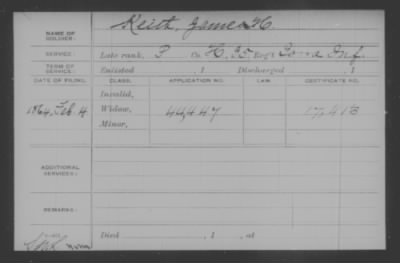 NAME OF SOLDIER: Keith, James H.
SERVICE: Late rank, P Co. H, 25 Reg't Iowa Inf.
TERM OF SERVICE: Enlisted , 1 Discharged , 1
DATE OF FILING. CLASS. APPLICATION NO. LAW. CERTIFICATE NO.
Invalid,
1864, Feb. 4 Widow, 44,447 17,413
Minor,
ADDITIONAL SERVICES:
REMARKS:
Died , 1 , at